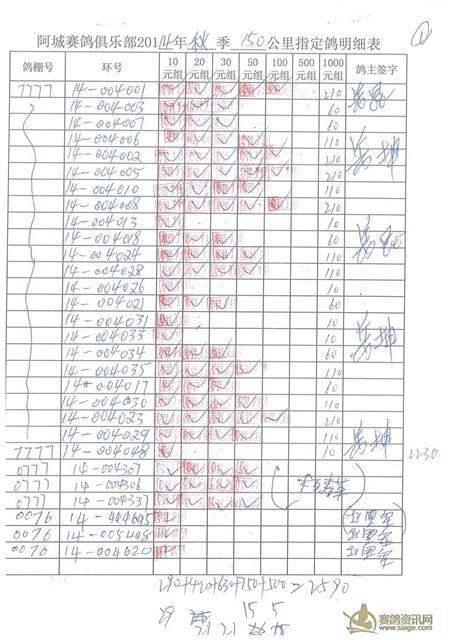 阿城赛鸽俱乐部2014年秋季150公里指定鸽明细表
鸽棚号 环号 10元组 20元组 30元组 50元组 100元组 500元组 1000元组 鸽主签字
7777 14-004001 210
14-004003 60
14-004007 60
14-004006 110
14-004002 210
14-004005 210
14-004010 110
14-004008 210
14-004013 10
14-004018 60
14-004024 110
14-004028 110
14-004026 10
14-004021 60
14-004031 10
14-004033 10
14-004034 60
14-004035 110
14-004017 60
14-004030 110
14-004023 210
14-004029 110
7777 14-004048 10 2230
0777 14-004307
0777 14-004306
0777 14-004337
0076 14-444645
0076 14-005448
0076 14-004620
290+420+630+750+500=2590
29 15 5
赛鸽资讯网
www.saige.com